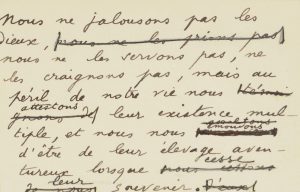 Nous ne jalousons pas les
dieux, nous ne les prions pas
nous ne les servons pas, ne
les craignons pas, mais au
péril de notre vie nous
attestons
leur existence mul-
tiple, et nous nous
émouvons
d'être de leur élevage aven-
cesse
tureux lorsque nous
leur
souvenir. D'eux